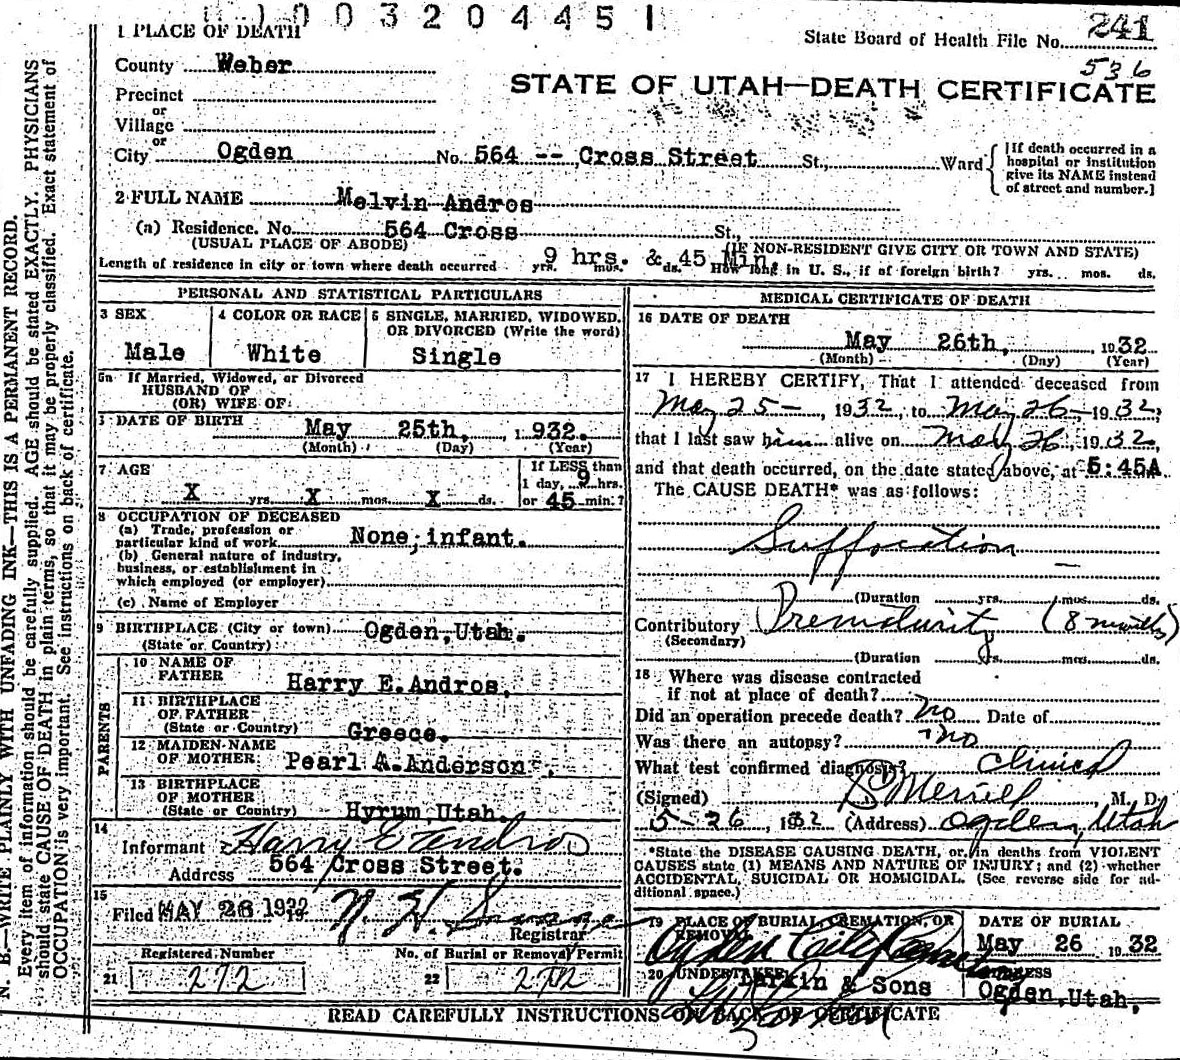 1003204451
1 PLACE OF DEATH
State Board of Health File No. 241
536
County Weber
STATE OF UTAH—DEATH CERTIFICATE
Precinct
or
Village
or
City Ogden No. 564 -- Cross Street St., Ward
[If death occurred in a hospital or institution give its NAME instead of street and number.]
2 FULL NAME Melvin Andros
(a) Residence. No. 564 Cross St.,
(USUAL PLACE OF ABODE) (IF NON-RESIDENT GIVE CITY OR TOWN AND STATE)
Length of residence in city or town where death occurred 9 hrs. & 45 Min. yrs. mos. ds. How long in U. S., if of foreign birth? yrs. mos. ds.
PERSONAL AND STATISTICAL PARTICULARS
3 SEX
Male
4 COLOR OR RACE
White
5 SINGLE, MARRIED, WIDOWED, OR DIVORCED (Write the word)
Single
5a If Married, Widowed, or Divorced
HUSBAND OF
(OR) WIFE OF
DATE OF BIRTH
May 25th, 1932.
(Month) (Day) (Year)
7 AGE
X yrs. X mos. X ds.
If LESS than
1 day, 9 hrs.
or 45 min.?
8 OCCUPATION OF DECEASED
(a) Trade, profession or
particular kind of work None, infant.
(b) General nature of industry,
business, or establishment in
which employed (or employer)
(c) Name of Employer
9 BIRTHPLACE (City or town) Ogden, Utah.
(State or Country)
PARENTS
10 NAME OF
FATHER Harry E. Andros.
11 BIRTHPLACE
OF FATHER
(State or Country) Greece.
12 MAIDEN-NAME
OF MOTHER Pearl A. Anderson.
13 BIRTHPLACE
OF MOTHER
(State or Country) Hyrum, Utah.
14
Informant Harry E Andros
Address 564 Cross Street.
15
Filed MAY 26 1932
Registrar
Registered Number
21 272
No. of Burial or Removal Permit
22 272
MEDICAL CERTIFICATE OF DEATH
16 DATE OF DEATH
May 26th, 1932
(Month) (Day) (Year)
17 I HEREBY CERTIFY, That I attended deceased from
May 25 - , 1932, to May 26 - 1932,
that I last saw him alive on May 26, 1932.
and that death occurred, on the date stated above, at 5:45A
The CAUSE DEATH* was as follows:
Suffocation
(Duration yrs. mos. ds.
Contributory Prematurity (8 months)
(Secondary)
(Duration yrs. mos. ds.
18 Where was disease contracted
if not at place of death?
Did an operation precede death? no Date of
Was there an autopsy? no
What test confirmed diagnosis? Clinical
(Signed) Merrill, M. D.
5-26, 1932 (Address) Ogden, Utah
*State the DISEASE CAUSING DEATH, or, in deaths from VIOLENT
CAUSES state (1) MEANS AND NATURE OF INJURY; and (2) whether
ACCIDENTAL, SUICIDAL OR HOMICIDAL. (See reverse side for additional space.)
19 PLACE OF BURIAL, CREMATION, OR REMOVAL
Ogden City Cemetery
DATE OF BURIAL
May 26 1932
20 UNDERTAKER
Larkin & Sons
ADDRESS
Ogden, Utah,
READ CAREFULLY INSTRUCTIONS ON BACK OF CERTIFICATE
N. B.—WRITE PLAINLY WITH UNFADING INK—THIS IS A PERMANENT RECORD.
Every item of information should be carefully supplied. AGE should be stated EXACTLY. PHYSICIANS
should state CAUSE OF DEATH in plain terms, so that it may be properly classified. Exact statement of
OCCUPATION is very important. See instructions on back of certificate.